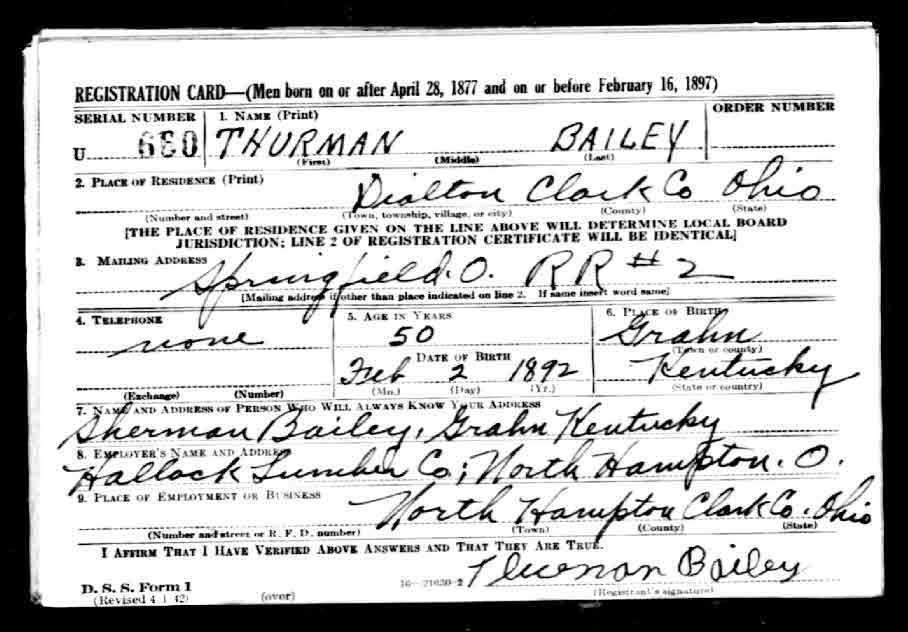 REGISTRATION CARD—(Men born on or after April 28, 1877 and on or before February 16, 1897)
SERIAL NUMBER 1. NAME (Print) ORDER NUMBER
U 680 THURMAN BAILEY
(First) (Middle) (Last)
2. PLACE OF RESIDENCE (Print)
Dialton Clark Co Ohio
(Number and street) (Town, township, village, or city) (County) (State)
[THE PLACE OF RESIDENCE GIVEN ON THE LINE ABOVE WILL DETERMINE LOCAL BOARD
JURISDICTION; LINE 2 OF REGISTRATION CERTIFICATE WILL BE IDENTICAL]
3. MAILING ADDRESS
Springfield. O. RR #2
[Mailing address if other than place indicated on line 2. If same insert word same]
4. TELEPHONE 5. AGE IN YEARS 6. PLACE OF BIRTH
none 50 Grahn
DATE OF BIRTH (Town or county)
Feb 2 1892 Kentucky
(Exchange) (Number) (Mo.) (Day) (Yr.) (State or country)
7. NAME AND ADDRESS OF PERSON WHO WILL ALWAYS KNOW YOUR ADDRESS
Sherman Bailey, Grahn Kentucky
8. EMPLOYER'S NAME AND ADDRESS
Hallock Lumber Co; North Hampton. O.
9. PLACE OF EMPLOYMENT OR BUSINESS
North Hampton Clark Co. Ohio
(Number and street or R. F. D. number) (Town) (County) (State)
I AFFIRM THAT I HAVE VERIFIED ABOVE ANSWERS AND THAT THEY ARE TRUE.
Thurman Bailey
D. S. S. Form 1 16—21630-2
(Revised 4-1-42) (over) (Registrant's signature)